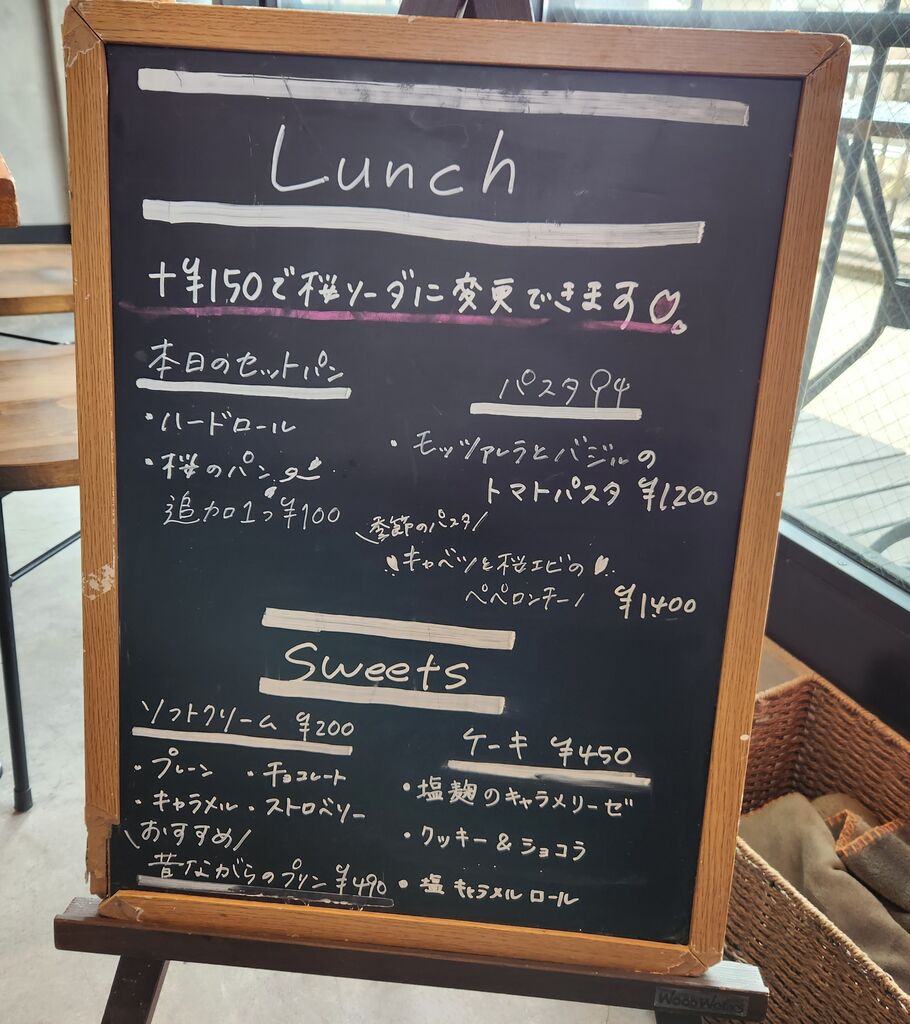 Lunch
+¥150で桜ソーダに変更できます
本日のセットパン
・ハードロール
・桜のパン
追加1つ¥100
パスタ
・モッツァレラとバジルの
トマトパスタ ¥1,200
\季節のパスタ/
キャベツと桜エビの
ペペロンチーノ ¥1,400
Sweets
ソフトクリーム ¥200
・プレーン ・チョコレート
・キャラメル ・ストロベリー
\おすすめ/
昔ながらのプリン ¥490
ケーキ ¥450
・塩麹のキャラメリーゼ
・クッキー&ショコラ
・塩キャラメルロール